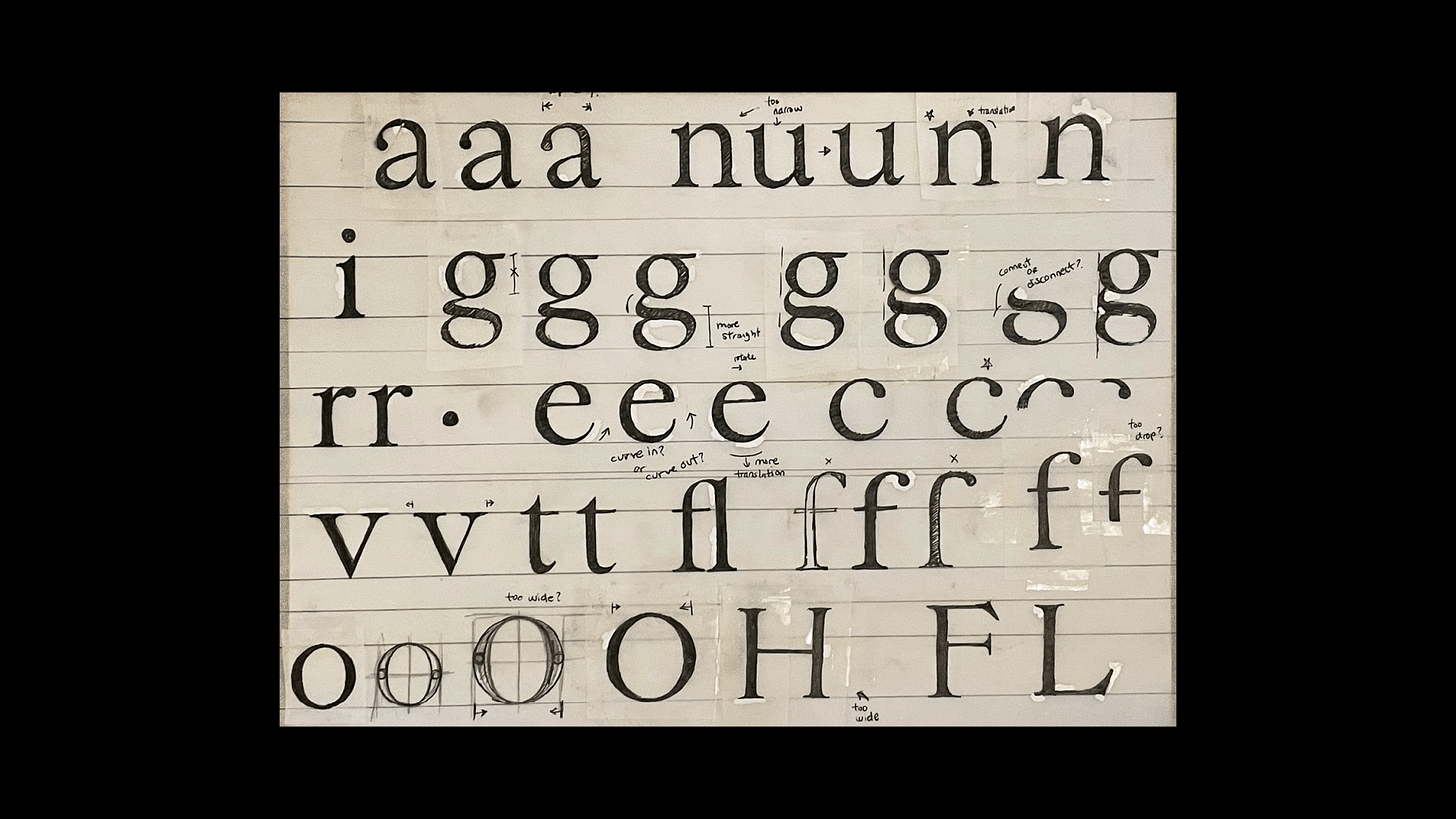 too
narrow
translation
a a a n u u n n
connect
or
disconnect?
i g g g g g g g
more
straight
more
r r · e e e c c
too
drop?
curve in?
or
curve out?
more
translation
v v t t fl f f f f
too wide?
o o O O H F L
too
wide